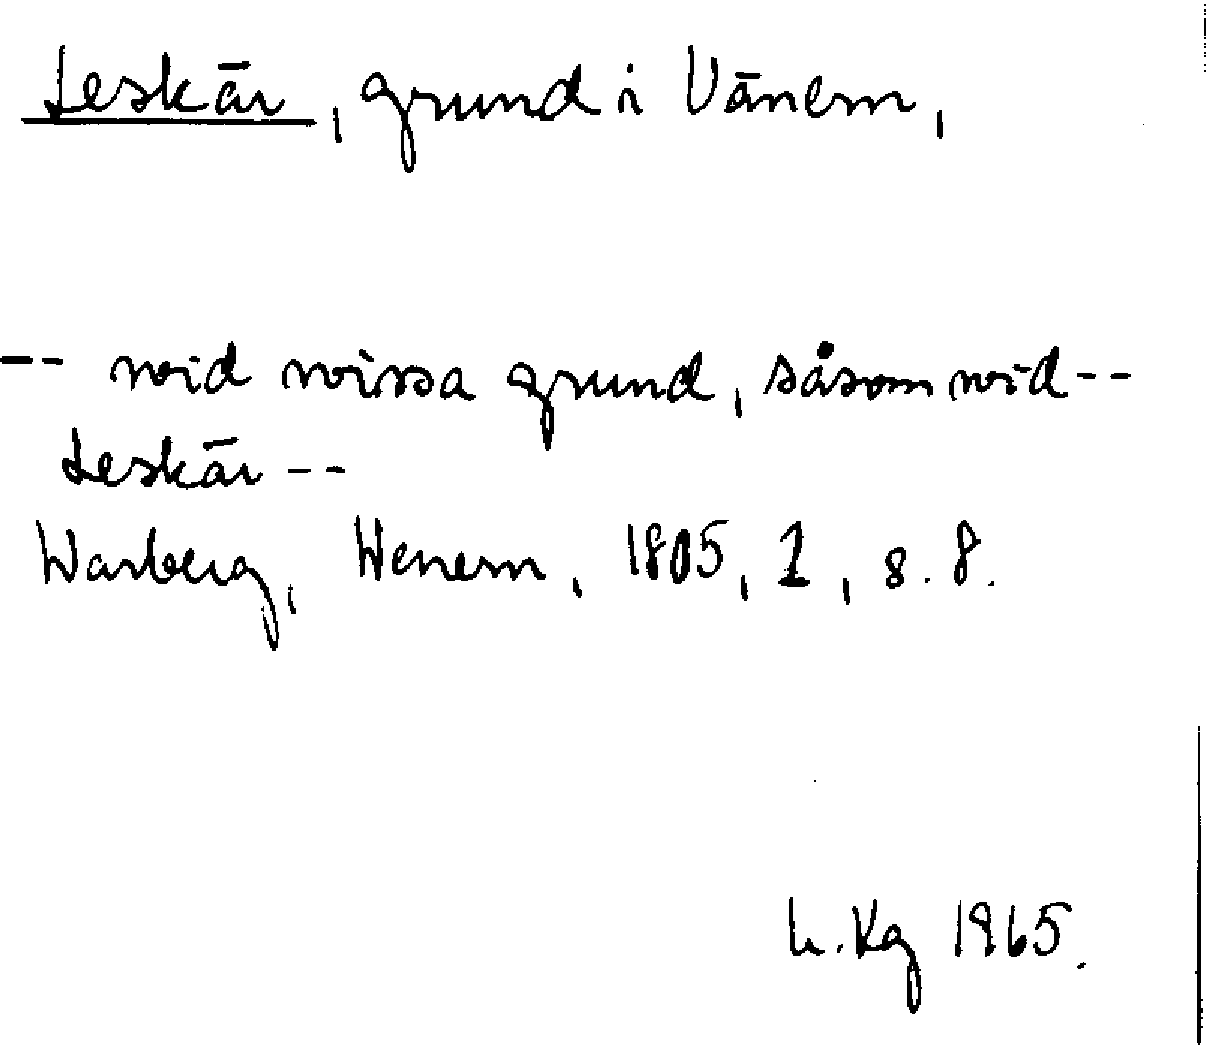 Leskär, grund i Vänern,
-- wid wissa grund, såsom wid--
Leskär --
Warberg, Wenern, 1805, 1, s. 8.
L. Kg 1965.